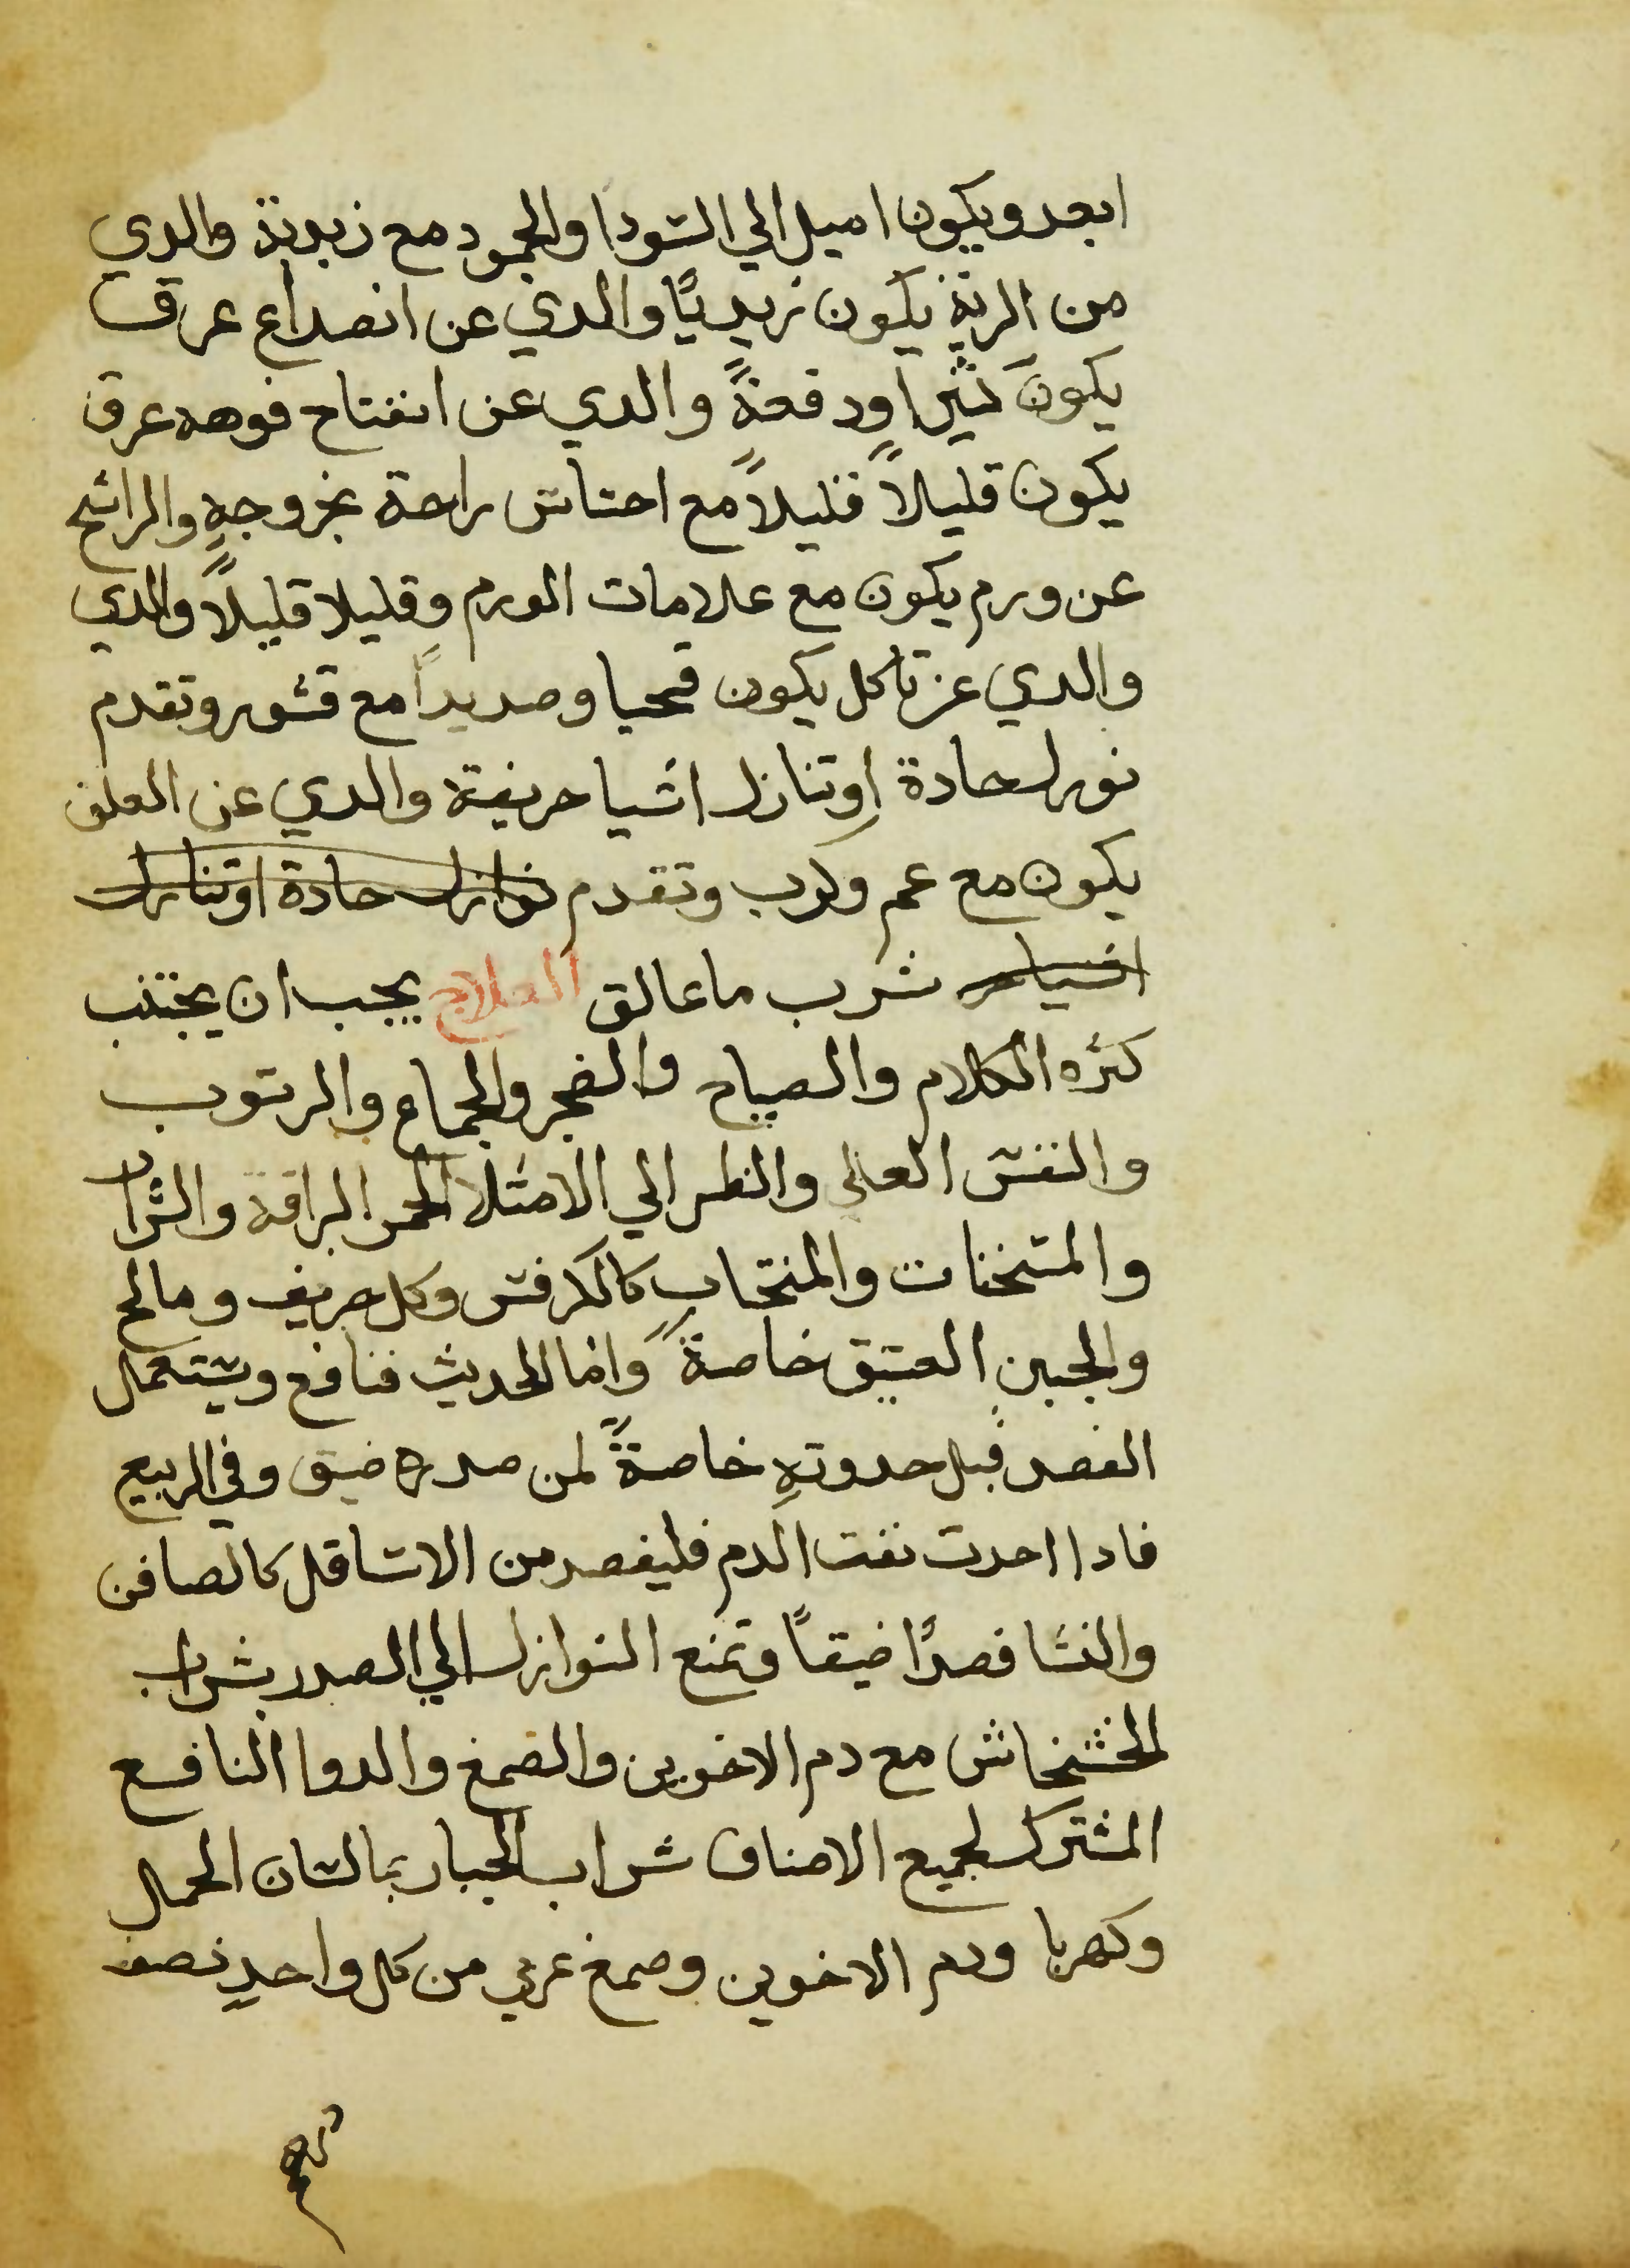 ابعد ويكون اميل الي السودا والجمود مع زبدية والدي
من الرية يكون زبديًا والدي عن انصداع عرق
يكون كثيرا ودفعةً والدي عن انفتاح فوهه عرق
يكون قليلاً قليلاً مع احساس راحة بخروجهِ والراشح
عن ورم يكون مع علامات الورم وقليلا قليلاً والدي
والدي عن تاكل يكون قحيا وصديداً مع قشور وتقدم
نورل حادة او تنازل اشيا حريفة والدي عن العلق
يكون مع غم وكرب وتقدم نوازل حادة او تنازل
اشيا حر شرب ما عالق العلاج يجب ان يجتنب
كثره الكلام والصياح والضجر والجماع والرتوب
والنفس العالي والنظر الي الامتلا الحمر البراقة والشراب
والمسخنات والمنتحاب كالكرفس وكل حريف ومالح
والجبن العتيق خاصةً واما الحديث فنافع ويستعمال
الفصد قبل حدوتهِ خاصةً لمن صدره ضيق وفي الربيع
فادا احدت نفت الدم فليفصد من الاسافل كالصافن
والنسا فصدًا ضيقاً وتمنع النوازل الي الصدر بشراب
الخشخاش مع دم الاخوين والصمغ والدوا النافع
المشترك لجميع الاصناف شراب الجبار بمالسان الحمال
وكهربا ودم الاخوين وصمغ عربي من كل واحدٍ نصف